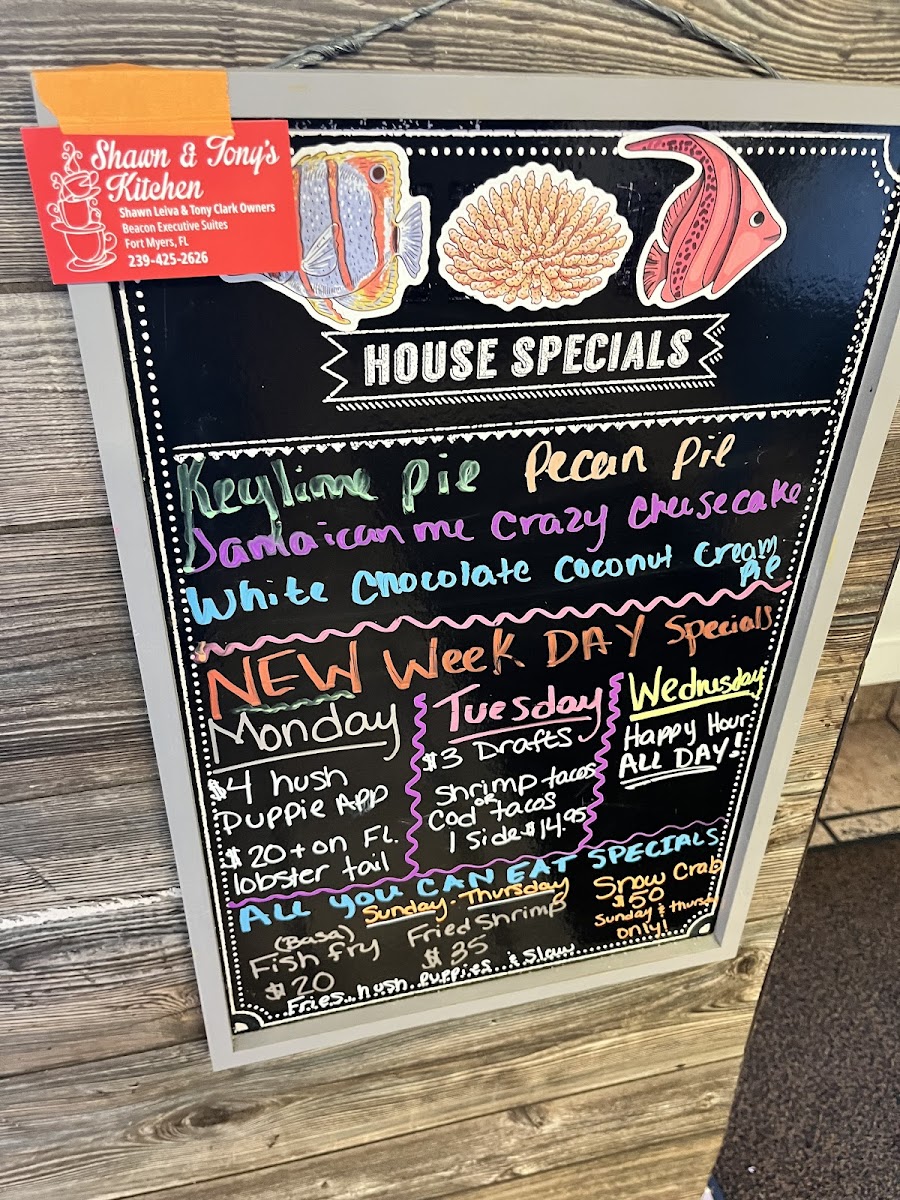 Shawn & Tony's
Kitchen
Shawn Leiva & Tony Clark Owners
Beacon Executive Suites
Fort Myers, FL
239-425-2626
HOUSE SPECIALS
Keylime Pie Pecan Pie
Jamaican me Crazy Cheesecake
White Chocolate Coconut Cream
Pie
NEW Week DAY Specials
Monday
$4 hush
puppie App
$20 + on FL.
lobster tail
Tuesday
$3 Drafts
Shrimp tacos
or
Cod tacos
1 Side $14.95
Wednesday
Happy Hour
ALL DAY!
ALL YOU CAN EAT SPECIALS
Sunday - Thursday
(Basa)
Fish fry
$20
Fried Shrimp
$35
Snow Crab
$50
Sunday & thursday
only!
Fries.. hush puppies.. & slaw